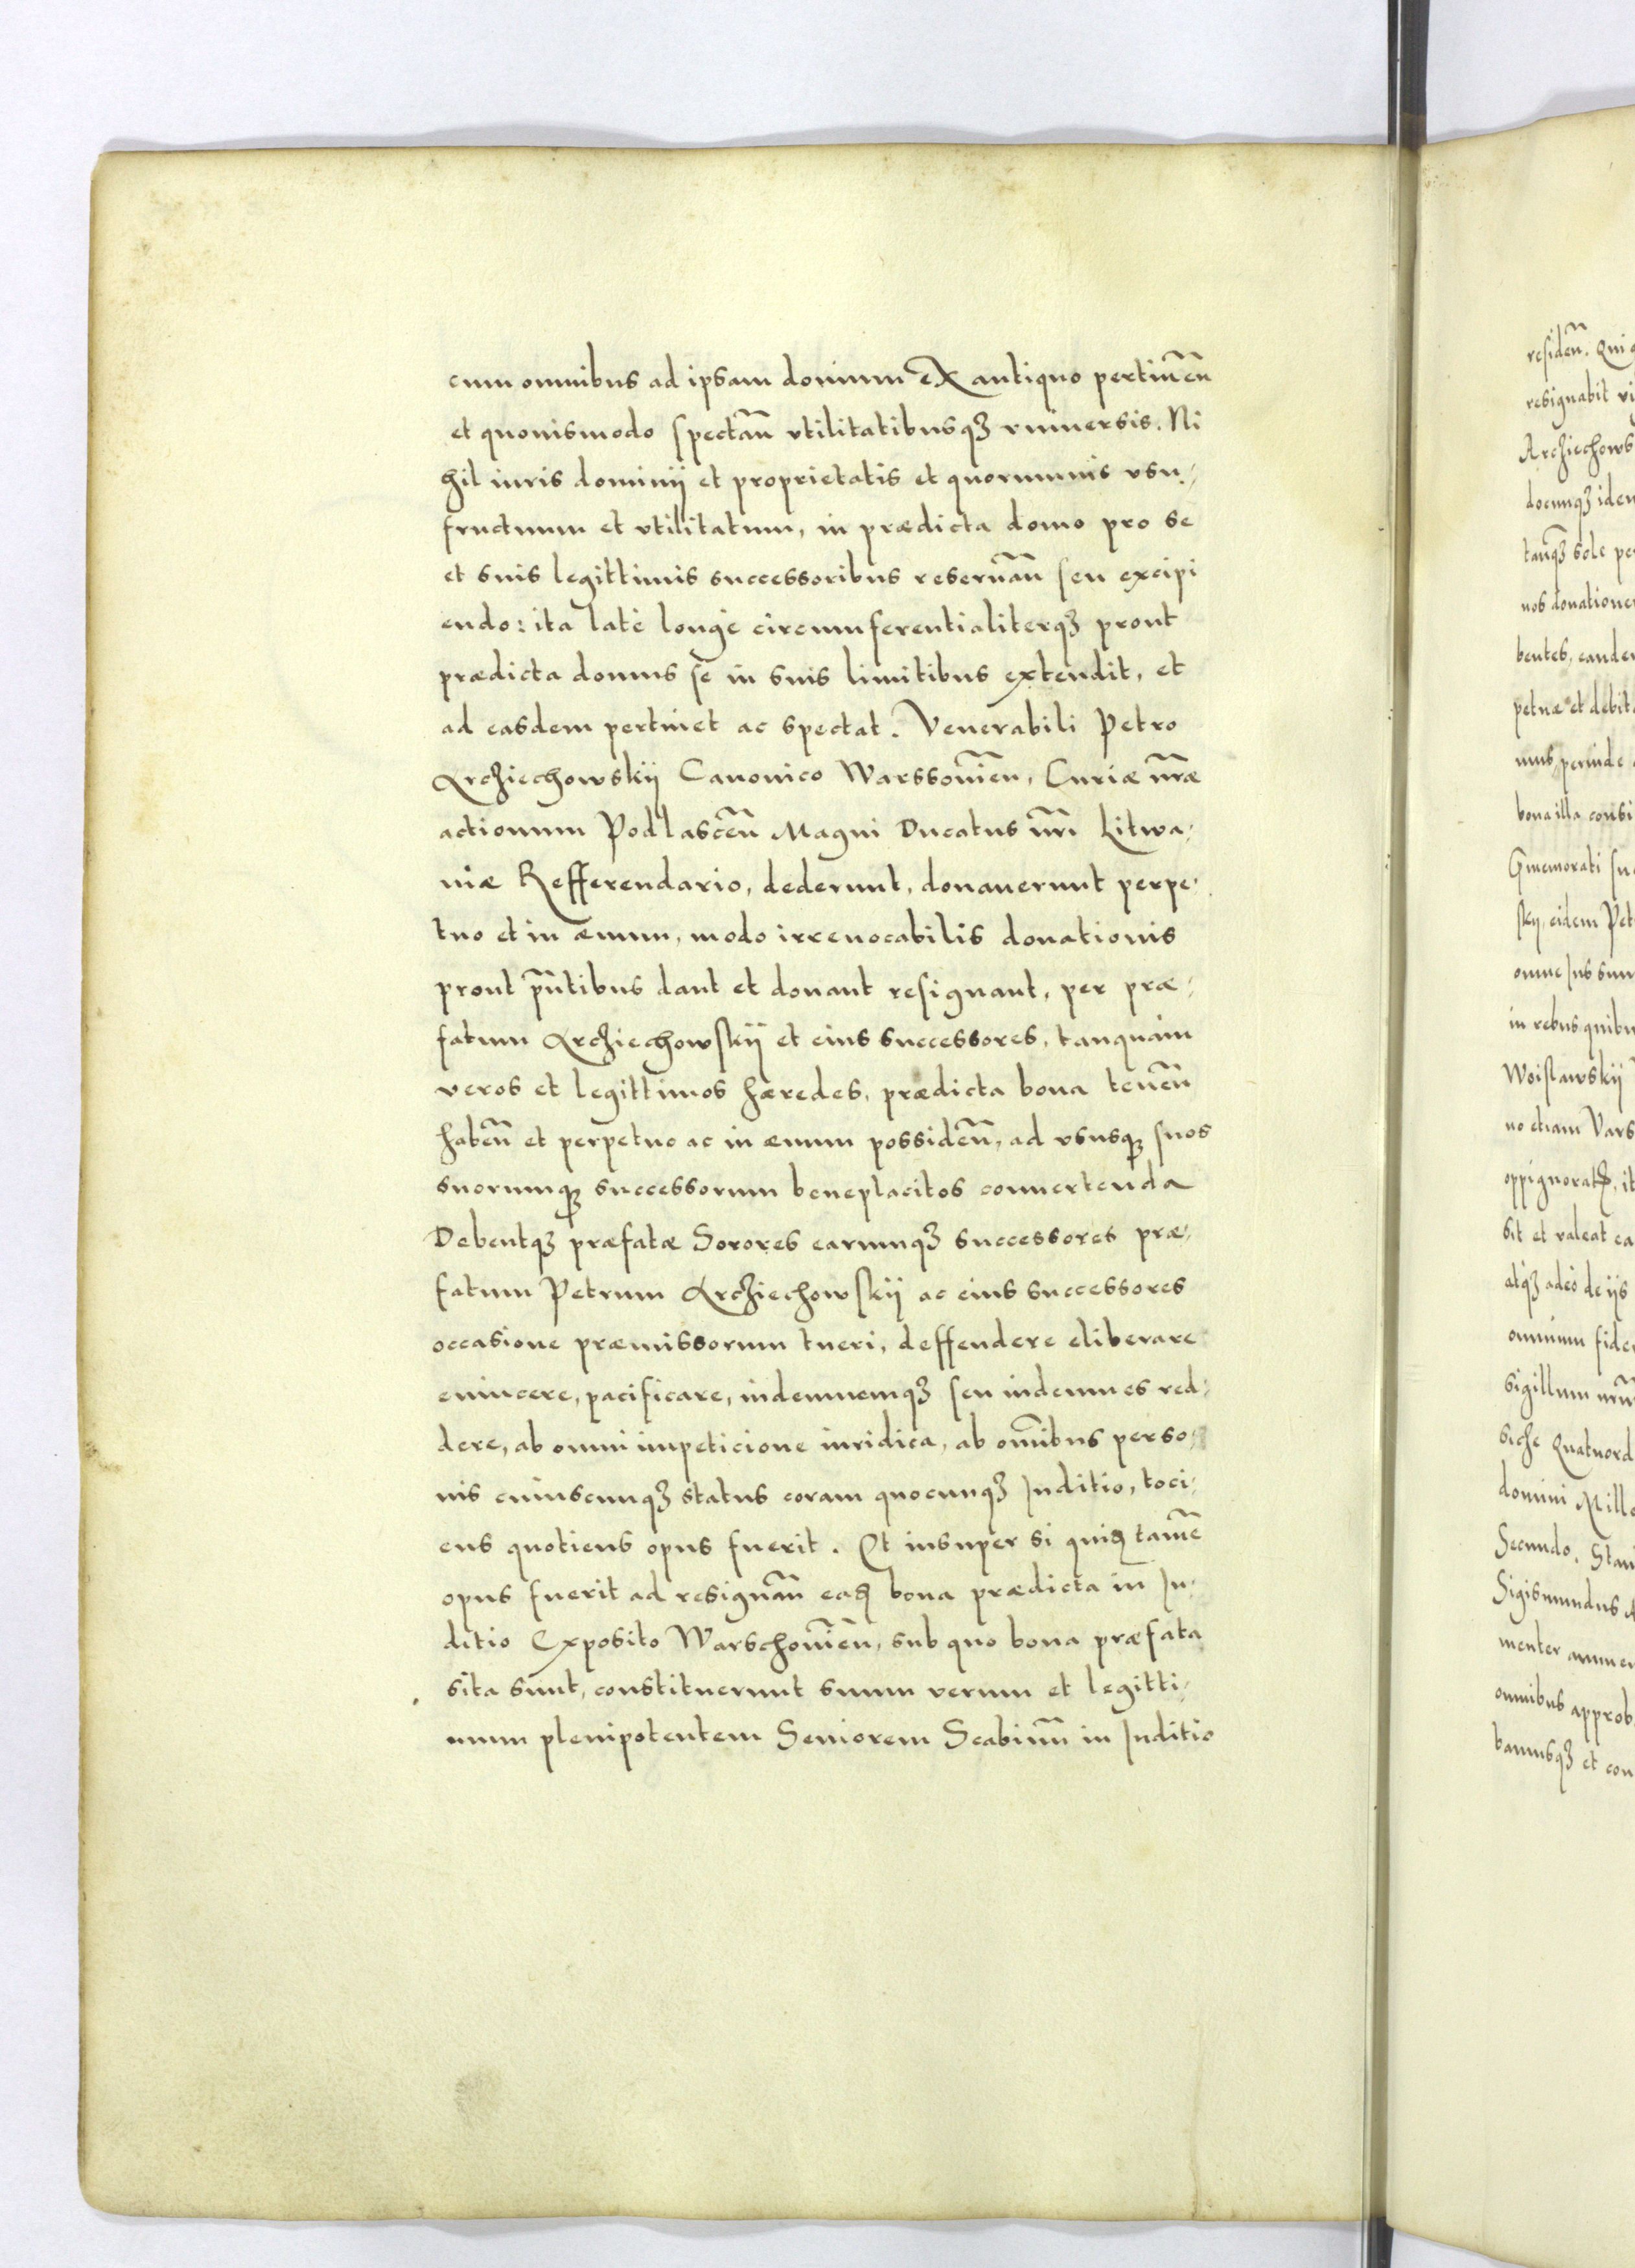 cum omnibus ad ipsam domum ex antiquo pertineñ
et quouismodo spectañ vtilitatibusqȝ vniuersis. Ni
hil iuris dominij et proprietatis et quorumuis vsu-
fructuum et vtilitatum, in prædicta domo pro se
et suis legittimis successoribus reseruañ seu excipi
endo: ita latè longè circumferentialiterqȝ prout
prædicta domus se in suis limitibus extendit, et
ad easdem pertinet ac spectat. Venerabili Petro
Arcziechowskij Canonico Warssouieñ, Curiæ nr̃æ
actionum Podlasceñ Magni Ducatus nr̃i Litwa-
niæ Refferendario, dederunt, donauerunt perpe-
tuo et in æuum, modo irreuocabilis donationis
prout pñtibus dant et donant resignant, per præ-
fatum Arcziechowskij et eius successores, tanquàm
veros et legittimos hæredes, prædicta bona teneñ
habeñ et perpetuo ac in æuum possideñ, ad vsusqȝ suos
suorumqȝ successorum beneplacitos conuertenda
Debentqȝ præfatæ Sorores earumqȝ successores præ-
fatum Petrum Arcziechowskij ac eius successores
occasione præmissorum tueri, deffendere eliberare
euincere, pacificare, indemnemqȝ seu indemnes red-
dere, ab omni impeticione iuridica, ab om̃ibus perso-
nis cuiuscunqȝ status coram quocunqȝ Juditio, toci-
ens quotiens opus fuerit. Et insuper si quid tamẽ
opus fuerit ad resignañ ead bona prædicta in Ju-
ditio Exposito Warschouieñ, sub quo bona præfata
sita sunt, constituerunt suum verum et legitti-
mum plenipotentem Seniorem Scabinũ in Juditio
resideñ. Qui
resignabit
Arcziechows
docunqȝ iden
tanqȝ sole pe
nos donatione
bentes, eande
petuæ et debit
mus, perinde
bona illa consi
skij, eidem Pet
omne Jus suu
in rebus quibu
Woislawskij
no etiam Vars
sit et valeat ea
atqȝ adeò de ijs
omnium fide
sigillum nr̃u
Quatuord
domini Mille
Secundo. Stan
Sigismundus A
menter
omnibus approb
bamusqȝ et con